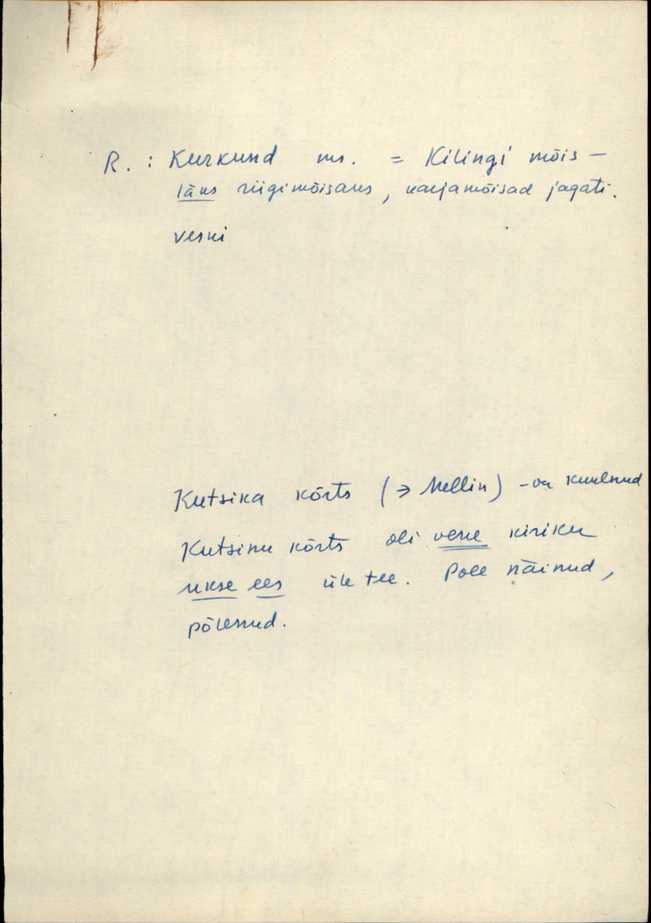 R. : Kurkund ms. = Kilingi mõis –
läks riigimõisaks, karjamõisad jagati.
veski
Kutsika kõrts (→ Mellin) – on kuulnud
Kutsiku kõrts oli vene kiriku
ukse ees üle tee. Pole näinud,
põlenud.